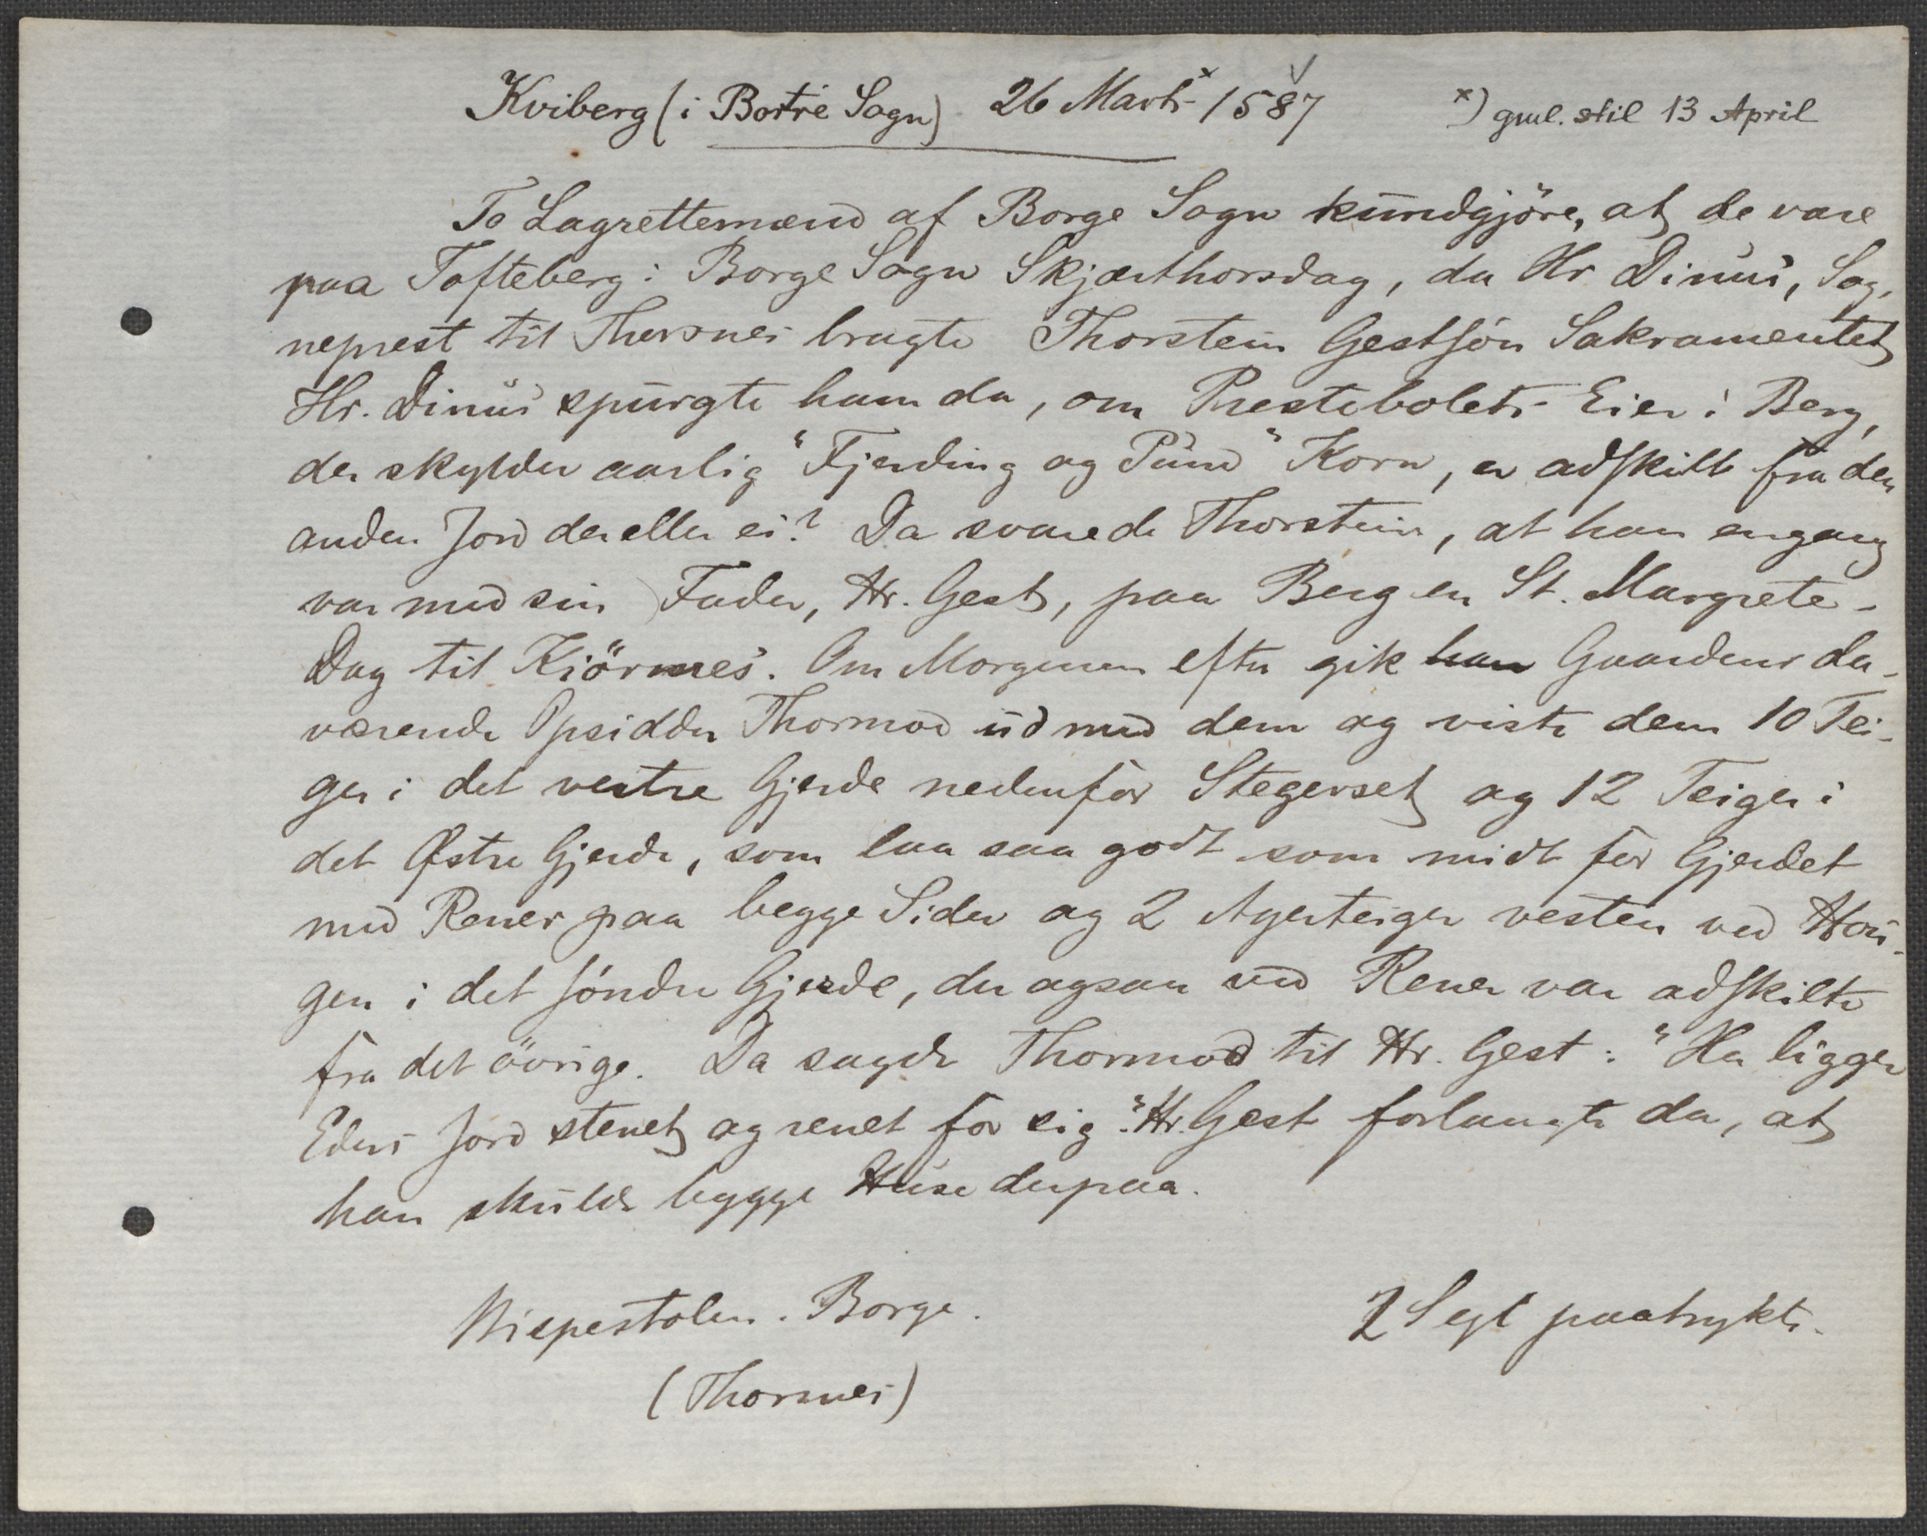 Kviberg (i Borre Sogn) 26 Marts x 1587 x) gml. stil 13 April
To Lagrettemænd af Borge Sogn kundgjöre, at de vare
paa Tofteberg i Borge Sogn Skjærthorsdag, da Hr Dinus, Sog-
neprest til Thorsnes bragte Thorstein Gestsön Sakramentet
Hr. Dinus spurgte ham da, om Prestebolets Eier i Berg,
der skylder aarlig "Fjerding og Pund" Korn, er adskilt fra den
anden Jord der eller ei? Da svarede Thorstein, at han engang
var med sin Fader, Hr. Gest, paa Berg en St. Margrete-
Dag til Kiörmes. Om Morgenen efter gik han Gaardens da-
værende Opsidder Thormod ud med dem og viste dem 10 Tei-
ger i det vestre Gjerde nedenfor Stegerset og 12 Teiger i
det Østre Gjerde, som laa saa godt som midt for Gjerdet
med Rener paa begge Sider og 2 Agerteiger vesten ved Hou-
gen i det söndre Gjerde, der ogsaa ved Rener var adskilte
fra det övrige. Da sagde Thormod til Hr. Gest: "Her ligger
Eders Jord stenet og renet for sig". Hr. Gest forlangte da, at
han skulde bygge Huse derpaa.
Bispestolen. Borge. 2 Segl paatrykte.
(Thorsnes)